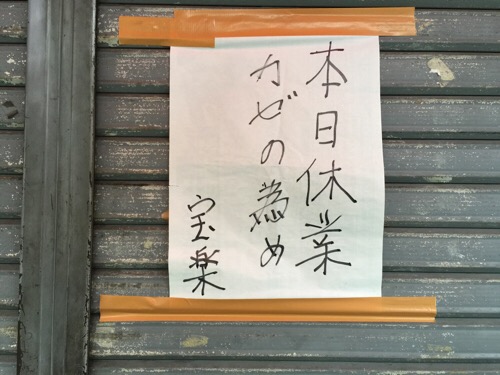 本日休業
カゼの為め
宝楽